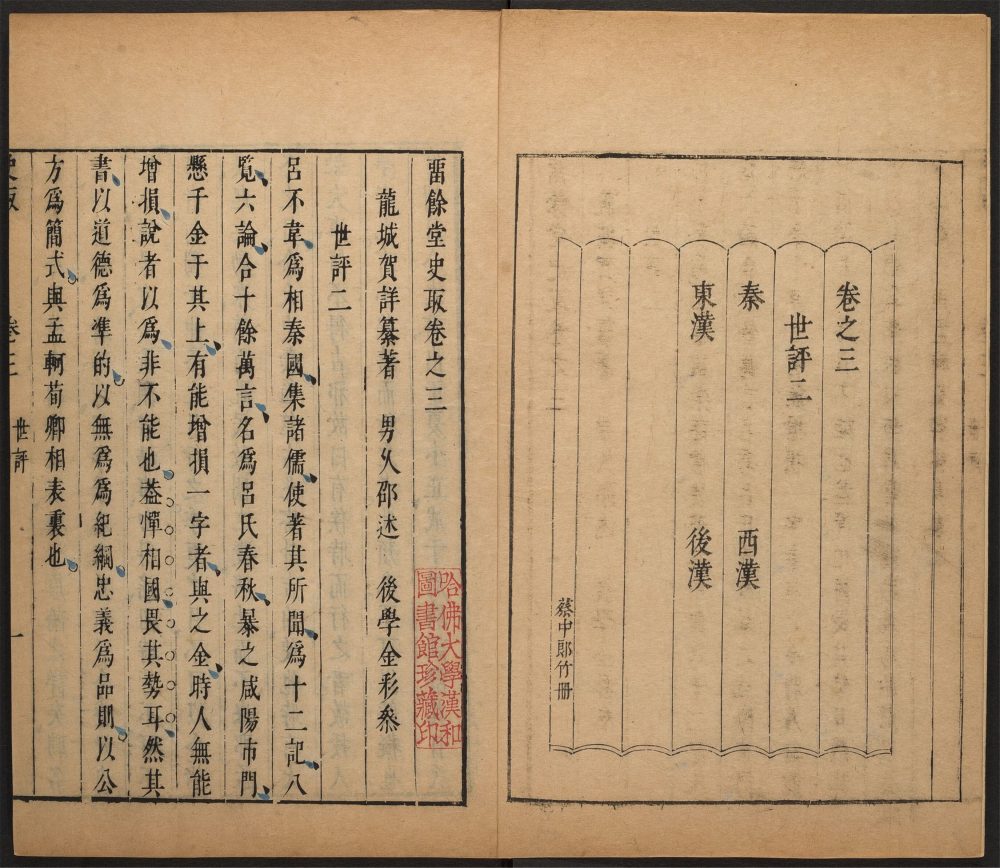 卷之三
世評二
秦　西漢
東漢　後漢
蔡中郎竹册
畱餘堂史取卷之三
龍城賀詳纂著　男久邵述　後學金彩叅
世評二
呂不韋爲相秦國集諸儒使著其所聞爲十二記八
覧六論合十餘萬言名爲呂氏春秋暴之咸陽市門
懸千金于其上有能增損一字者與之金時人無能
增損說者以爲非不能也葢憚相國畏其勢耳然其
書以道德爲準的以無爲爲紀綱忠義爲品則以公
方爲簡式與孟軻荀卿相表裏也
史取　卷三　世評　一
哈佛大學漢和
圖書館珍藏印